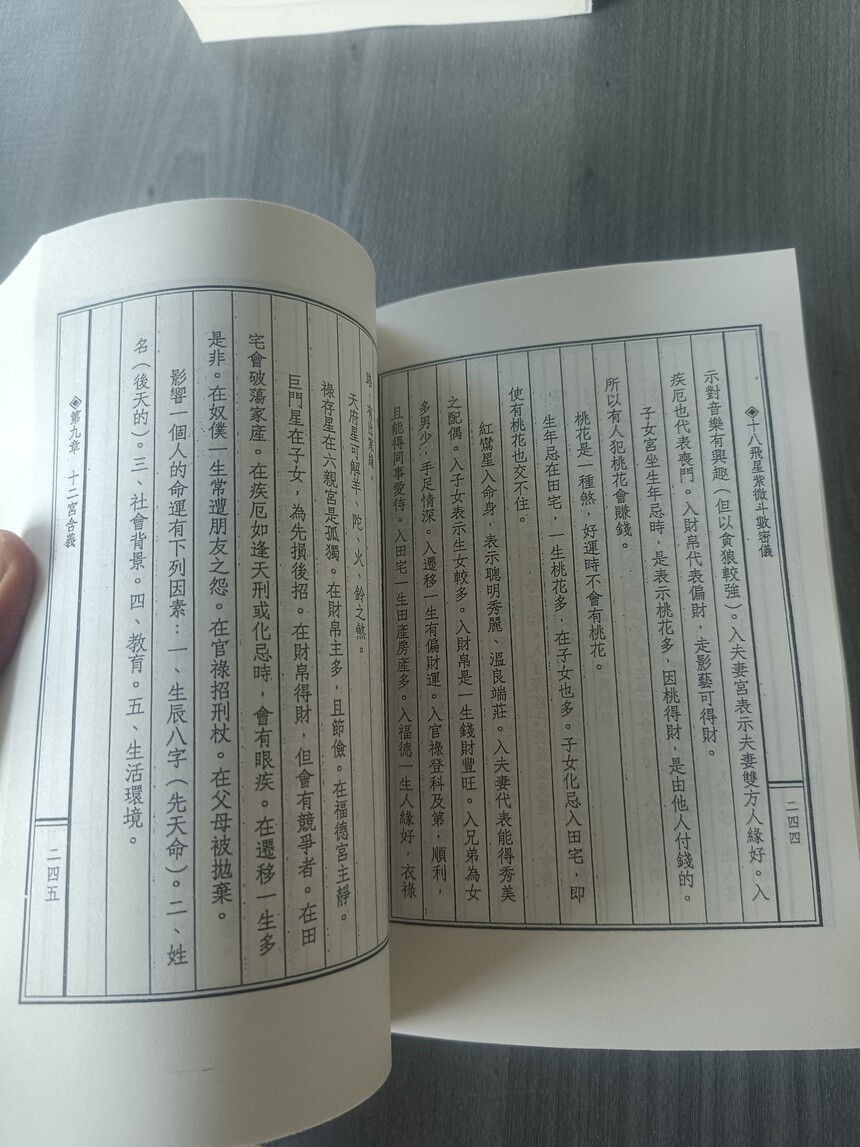 ◈十八飛星紫微斗數密儀
二四四
示對音樂有興趣（但以貪狼較強）。入夫妻宮表示夫妻雙方人緣好。入
疾厄也代表喪門。入財帛代表偏財，走影藝可得財。
子女宮坐生年忌時，是表示桃花多，因桃得財，是由他人付錢的。
所以有人犯桃花會賺錢。
桃花是一種煞，好運時不會有桃花。
生年忌在田宅，一生桃花多，在子女也多。子女化忌入田宅，即
使有桃花也交不住。
紅鸞星入命身，表示聰明秀麗、溫良端莊。入夫妻代表能得秀美
之配偶。入子女表示生女較多。入財帛是一生錢財豐旺。入兄弟為女
多男少，手足情深。入遷移一生有偏財運。入官祿登科及第，順利，
且能得同事愛待。入田宅一生田產房產多。入福德一生人緣好，衣祿
有出家緣。
天府星可解羊、陀、火、鈴之煞。
祿存星在六親宮是孤獨。在財帛主多，且節儉。在福德宮主靜。
巨門星在子女，為先損後招。在財帛得財，但會有競爭者。在田
宅會破蕩家產。在疾厄如逢天刑或化忌時，會有眼疾。在遷移一生多
是非。在奴僕一生常遭朋友之怨。在官祿招刑杖。在父母被拋棄。
影響一個人的命運有下列因素：一、生辰八字（先天命）。二、姓
名（後天的）。三、社會背景。四、教育。五、生活環境。
◈第九章　十二宮含義
二四五